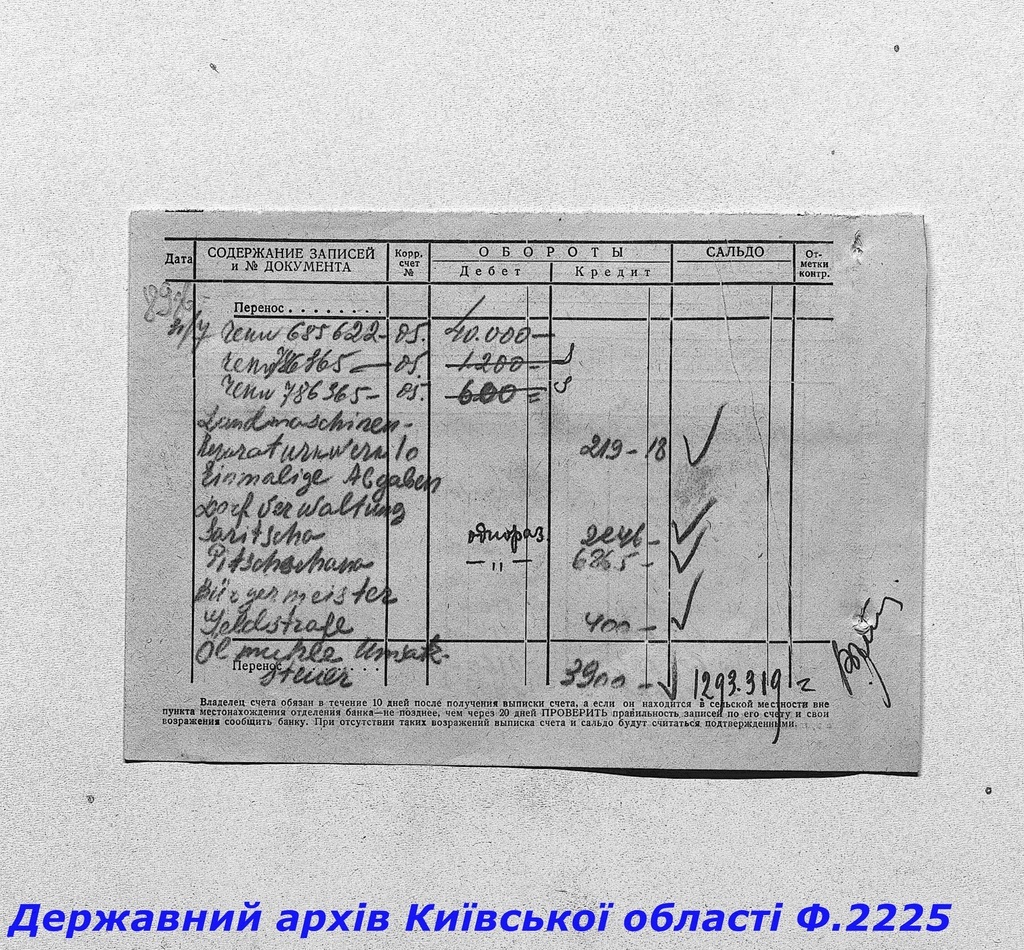 Дата СОДЕРЖАНИЕ ЗАПИСЕЙ и № ДОКУМЕНТА Корр. счет № ОБОРОТЫ Дебет Кредит САЛЬДО От-метки контр.
Перенос . . . . . . . .
685622- 05. 40.000-
05. 1200-
786365- 05. 600 =
Landmaschinen-
219-18
Einmalige Abgaben
Dorfverwaltung
Saritscha однораз.
- " - 6265-
Bürgermeister
Geldstrafe 400-
Ölmühle Umsatz-
Перенос . . . . . . . .
steuer 3900- 1293.319=
Владелец счета обязан в течение 10 дней после получения выписки счета, а если он находится в сельской местности вне
пункта местонахождения отделения банка—не позднее, чем через 20 дней ПРОВЕРИТЬ правильность записей по его счету и свои
возражения сообщить банку. При отсутствии таких возражений выписка счета и сальдо будут считаться подтвержденными.
Державний архів Київської області Ф.2225